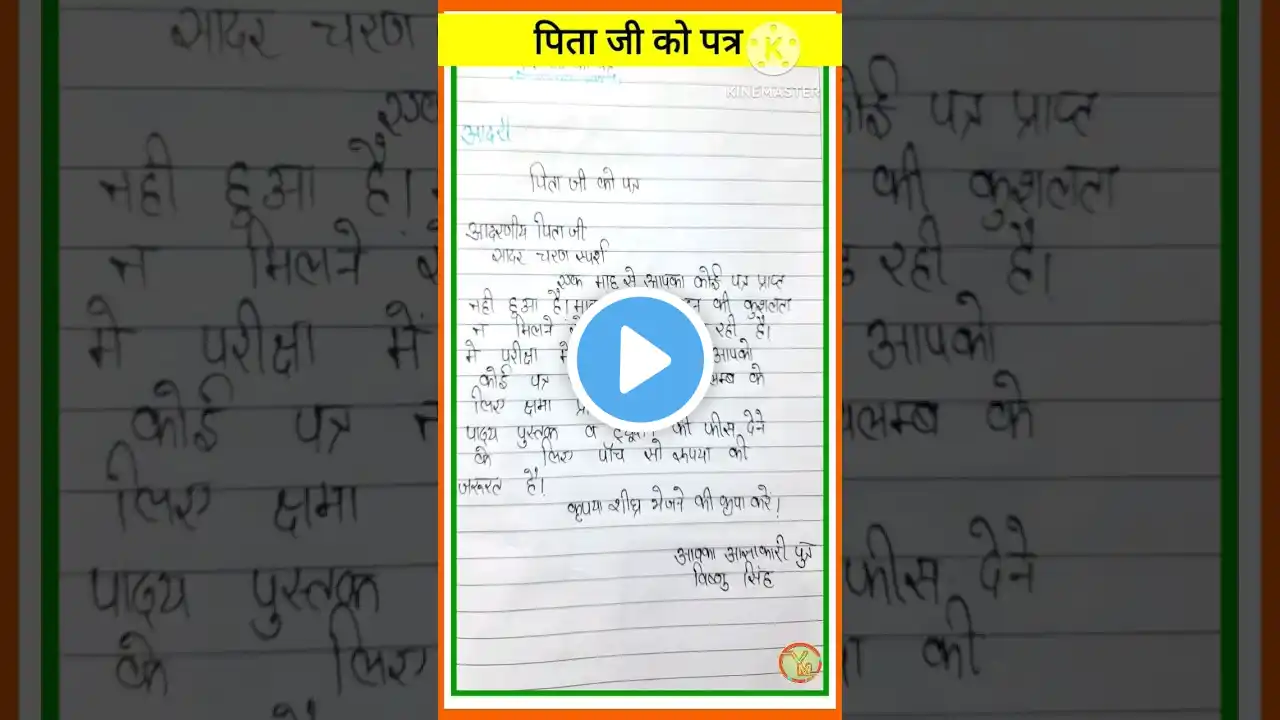 पिता जी को पत्र
KINEMASTER
पिता जी को पत्र
आदरणीय पिता जी
सादर चरण स्पर्श
एक माह से आपका कोई पत्र प्राप्त
नही हुआ है। की कुशलता
न मिलने रही है।
मे परीक्षा में आपको
कोई पत्र के
लिए क्षमा
पाठ्य पुस्तक व की फीस देने
के लिए पाँच सो रूपया की
जरूरत है।
कृपया शीघ्र भेजने की कृपा करें।
आपका आज्ञाकारी पुत्र
विष्णु सिंह